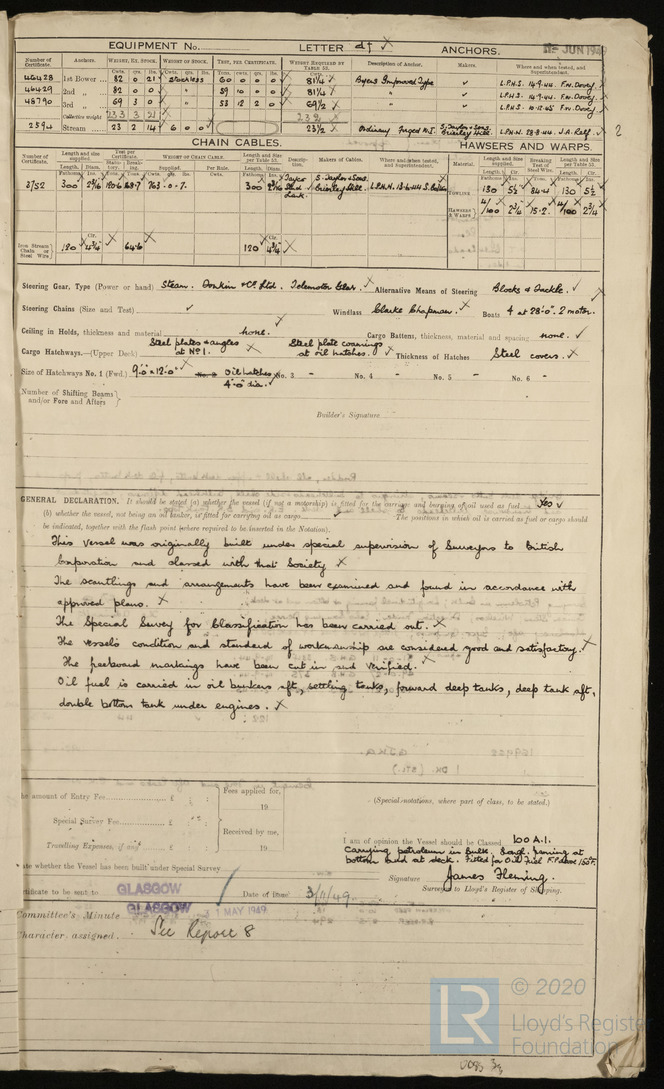 EQUIPMENT No. LETTER df ANCHORS. JUN 194
Number of Certificate. Anchors. Weight, Ex. Stock. Weight of Stock. Test, per Certificate. Weight Required by Table 53. Description of Anchor. Makers. Where and when tested, and Superintendent.
Cwts. qrs. lbs. Cwts. qrs. lbs. Tons. cwts. qrs. lbs. Cwts.
46428 1st Bower 82 0 21 Stockless 60 0 0 0 81¼ Byers Improved Type L.P.H.S. 14·9·44. F.W. Dovey
46429 2nd „ 82 0 0 „ 59 10 0 0 81¼ L.P.H.S. 14·9·44. F.W. Dovey
48790 3rd „ 69 3 0 „ 53 12 2 0 69½ L.P.H.S. 10·12·45 F.W. Dovey
Collective weight 233 3 21 232
2594 Stream 23 2 14 6 0 0 23½ Ordinary Forged S. Taylor & Sons. Brierley Hill. L.P.H.N. 28·8·44 J.A. Relf 2
CHAIN CABLES. HAWSERS AND WARPS.
Number of Certificate. Length and size supplied. Test per Certificate. Weight of Chain Cable. Length and Size per Table 53. Description. Makers of Cables. Where and when tested, and Superintendent. Material. Length and Size supplied. Breaking Test of Steel Wire. Length and Size per Table 53.
Length. Diam. Supplied. Per Rule. Length. Diam. Length. Cir. Length. Cir.
3752 300 2 5/16 763·0·7. 300 2 5/16 Taylor Stud Link. S. Taylor & Sons. Brierley Hill. TOWLINE 130 5½ 84·4 130 5½
HAWSERS & WARPS 4/100 2¾ 15·2. 4/100 2¾
Iron Stream Chain or Steel Wire 120 4¾ 64·6 120 4¾
Steering Gear, Type (Power or hand) Steam. Donkin & Co. Ltd. Telemotor Gear. Alternative Means of Steering Blocks & Tackle.
Steering Chains (Size and Test) Windlass Clarke Chapman. Boats 4 at 28'·0". 2 motor.
Ceiling in Holds, thickness and material none. Cargo Battens, thickness, material and spacing none.
Cargo Hatchways.—(Upper Deck) Steel plates & angles at No 1. Steel plate coamings at oil hatches. Thickness of Hatches Steel covers.
Size of Hatchways No. 1 (Fwd.) 9'·0" × 12'·0" No. 2 Oil hatches 4'·0" dia. No. 3 - No. 4 - No. 5 - No. 6 -
Number of Shifting Beams and/or Fore and Afters
Builder's Signature
GENERAL DECLARATION. It should be stated (a) whether the vessel (if not a motorship) is fitted for the carriage and burning of oil used as fuel Yes
(b) whether the vessel, not being an oil tanker, is fitted for carrying oil as cargo The positions in which oil is carried as fuel or cargo should
be indicated, together with the flash point (where required to be inserted in the Notation).
This vessel was originally built under special supervision of Surveyors to British
Corporation and classed with that Society
The scantlings and arrangements have been examined and found in accordance with
approved plans.
The Special Survey for Classification has been carried out.
The vessels condition and standard of workmanship are considered good and satisfactory.
The freeboard markings have been cut in and verified.
Oil fuel is carried in oil bunkers aft, settling tanks, forward deep tanks, deep tank aft,
double bottom tank under engines.
he amount of Entry Fee £ : : Fees applied for,
19
Special Survey Fee £ : Received by me,
Travelling Expenses, if any £ : 19
(Special notations, where part of class, to be stated.)
I am of opinion the Vessel should be Classed 100 A.1.
Carrying petroleum in bulk. Longl. framing at
bottom and at deck. Fitted for Oil Fuel F.P. above 150°F.
ate whether the Vessel has been built under Special Survey
Signature James Fleming.
Surveyor to Lloyd's Register of Shipping.
ertificate to be sent to GLASGOW Date of issue
Committee's Minute GLASGOW 1 MAY 1949
Character assigned See Report 8
© 2020
LR Lloyd's Register
Foundation